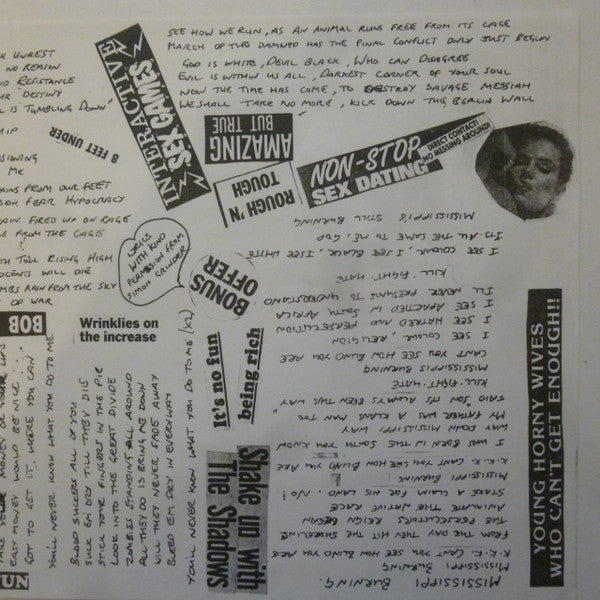 SEE HOW WE RUN, AS AN ANIMAL RUNS FREE FROM ITS CAGE
MARCH OF THIS DAMNED HAS THE FINAL CONFLICT ONLY JUST BEGUN
GOD IS WHITE, DEVIL BLACK, WHO CAN DISAGREE
EVIL IS WITHIN US ALL, DARKEST CORNER OF YOUR SOUL
NOW THE TIME HAS COME, TO DESTROY SAVAGE MESSIAH
WE SHALL TAKE NO MORE, KICK DOWN THE BERLIN WALL
UNREST
NO REASON
RESISTANCE
DESTINY
IS TUMBLING DOWN"
8 FEET UNDER
ME
FROM OUR FEET
FEAR HYPOCRACY
FIRED UP ON RAGE
FROM THE CAGE
TOLL RISING HIGH
WILL DIE
RAIN FROM THE SKY
OF WAR
INTERACTIVE
SEX GAMES
AMAZING
BUT TRUE
ROUGH 'N
TOUGH
NON-STOP
SEX DATING
DIRECT CONTACT!
NO MESSING AROUND!
LYRICS
WITH KIND
PERMISSION FROM
SIMON GRINDER
BONUS
OFFER
BOB
Wrinklies on
the increase
It's no fun
being rich
Shake up with
The Shadows
YOUNG HORNY WIVES
WHO CAN'T GET ENOUGH!!
FUN
MONEY OR YOUR LIFE
EASY MONEY WOULD BE NICE
GOT TO GET IT WHERE YOU CAN
YOU'LL NEVER KNOW WHAT YOU DO TO ME
BLOOD SUCKERS ALL OF YOU
SUCK EM DRY TILL THEY DIE
STICK YOUR FINGERS IN THE PIE
LOOK INTO THE GREAT DIVIDE
ZOMBIES STANDING ALL AROUND
ALL THEY DO IS BRING ME DOWN
WILL THEY NEVER FADE AWAY
BLEED EM DRY IN EVERYWAY
YOU'LL NEVER KNOW WHAT YOU DO TO ME (X2)
MISSISSIPPI BURNING.
MISSISSIPPI BURNING
K.K.K. CAN'T YOU SEE HOW BLIND YOU ARE
FROM THE DAY THEY HIT THE SHORELINE
THE PERSECUTORS REIGN BEGUN
THE NATIVE RACE
STAKE A CLAIM FOR HIS LAND. NO!
MISSISSIPPI BURNING
K.K.K. CAN'T YOU SEE HOW BLIND YOU ARE
I WAS BORN IN THE SOUTH YOU KNOW
DOWN MISSISSIPPI WAY
MY FATHER WAS A KLANS MAN TOO
SAID "SON ITS ALWAYS BEEN THIS WAY"
KILL. FIGHT. HATE
MISSISSIPPI'S BURNING
CAN'T YOU SEE HOW BLIND YOU ARE
I SEE COLOUR, RELIGION
I SEE HATRED AND PERSECUTION
I SEE APARTIED IN SOUTH AFRICA
I'LL NEVER PRESUME TO UNDERSTAND
KILL. FIGHT. HATE
I SEE COLOUR, I SEE BLACK, I SEE WHITE
IT'S ALL THE SAME TO ME, GOD
MISSISSIPPI'S STILL BURNING